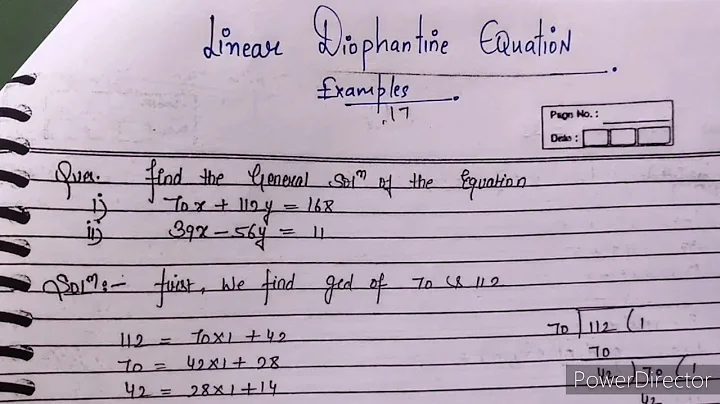 Linear Diophantine Equation
Examples
.17
Page No. :
Date :
Ques. Find the General Solⁿ of the Equation
i) 70x + 112y = 168
ii) 39x - 56y = 11
Solⁿ:- first, we find gcd of 70 & 112
112 = 70×1 + 42
70 = 42×1 + 28
42 = 28×1 + 14
70 ) 112 ( 1
70
42 ) 70 ( 1
42
PowerDirector